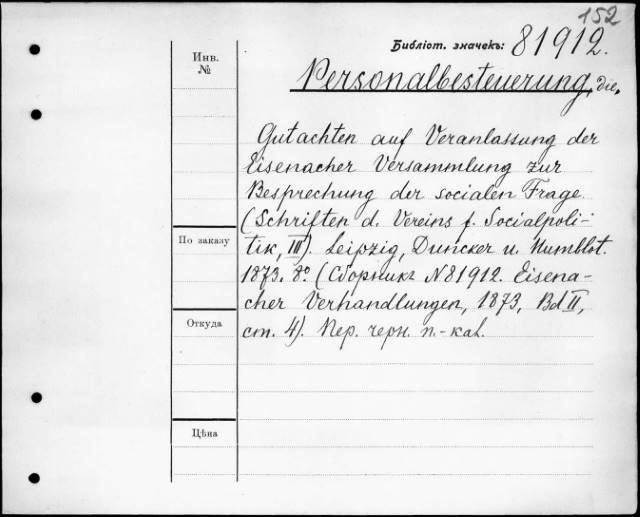 152
Библіот. значекъ: 81912.
Инв. №
Personalbesteuerung, die,
Gutachten auf Veranlassung der
Eisenacher Versammlung zur
Besprechung der socialen Frage.
(Schriften d. Vereins f. Socialpoli-
tik, III). Leipzig, Duncker u. Humblot.
1873. 8º. (Сборникъ N81912. Eisena-
cher Verhandlungen, 1873, Bd II,
ст. 4). Пер. черн. п.-каl.
По заказу
Откуда
Цѣна